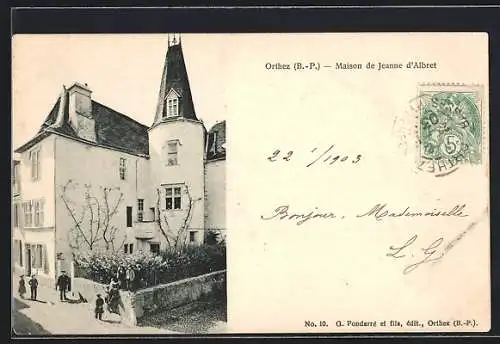 Orthez (B.-P.) — Maison de Jeanne d'Albret
5
22 1/ 1903
Bonjour, Mademoiselle
L. G.
No. 10. G. Pondarré et fils, édit., Orthez (B.-P.).